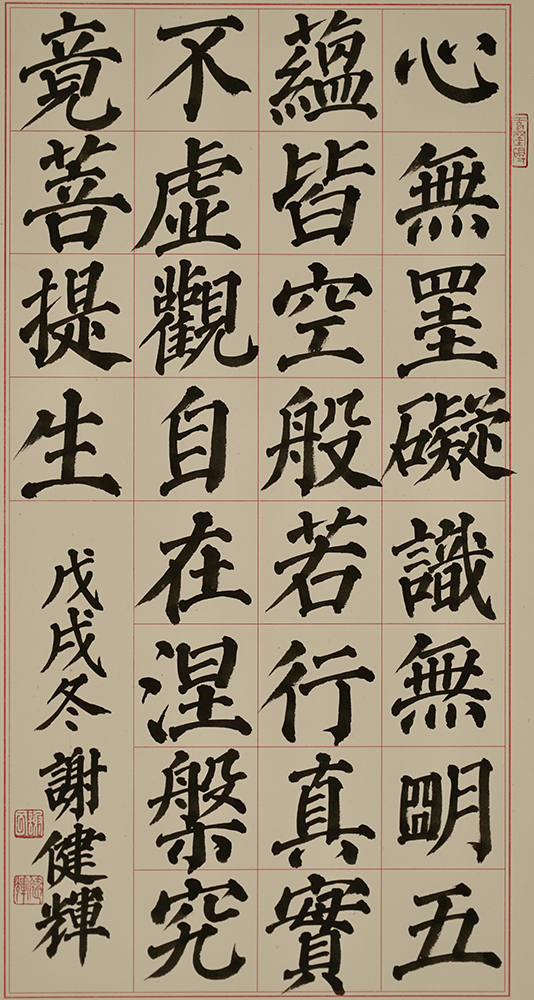 心無罣礙識無朙五
蘊皆空般若行真實
不虛觀自在涅槃究
竟菩提生
戊戌冬謝健輝